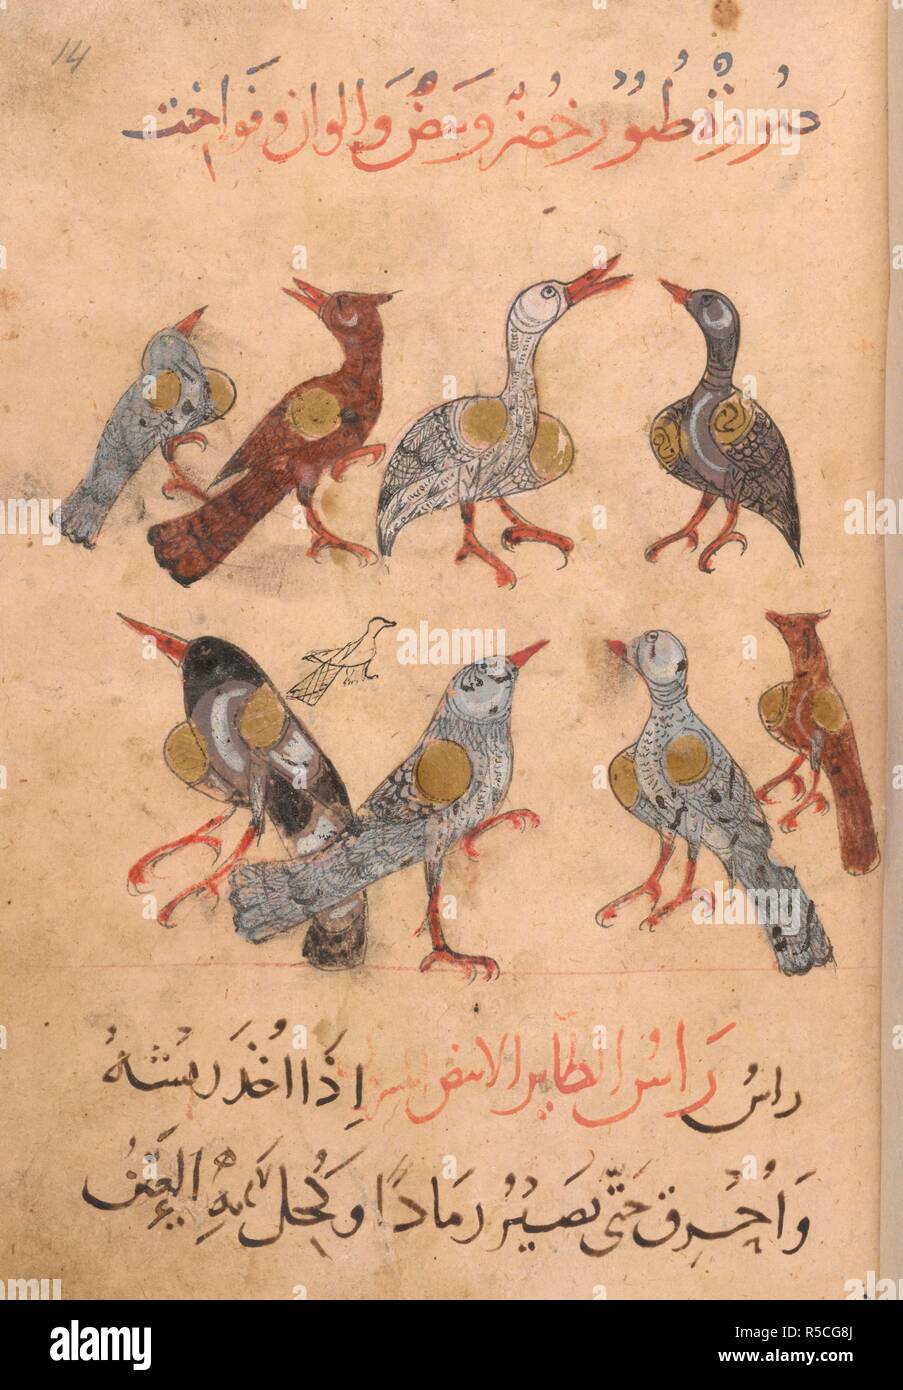 14
صُورَةْ طُيُور خُضْر وَبيض وَالوان وفَوَاخت
راسُ رَاسُ الطّاير الابيض اِذَا اُخذَ ريشه
وَاُحْرِقَ حَتّى يَصِيْرُ رَمَادًا وَكُحِلَ بِهِ العَيْنُ
alamy
Image ID: R5CG8J
www.alamy.com